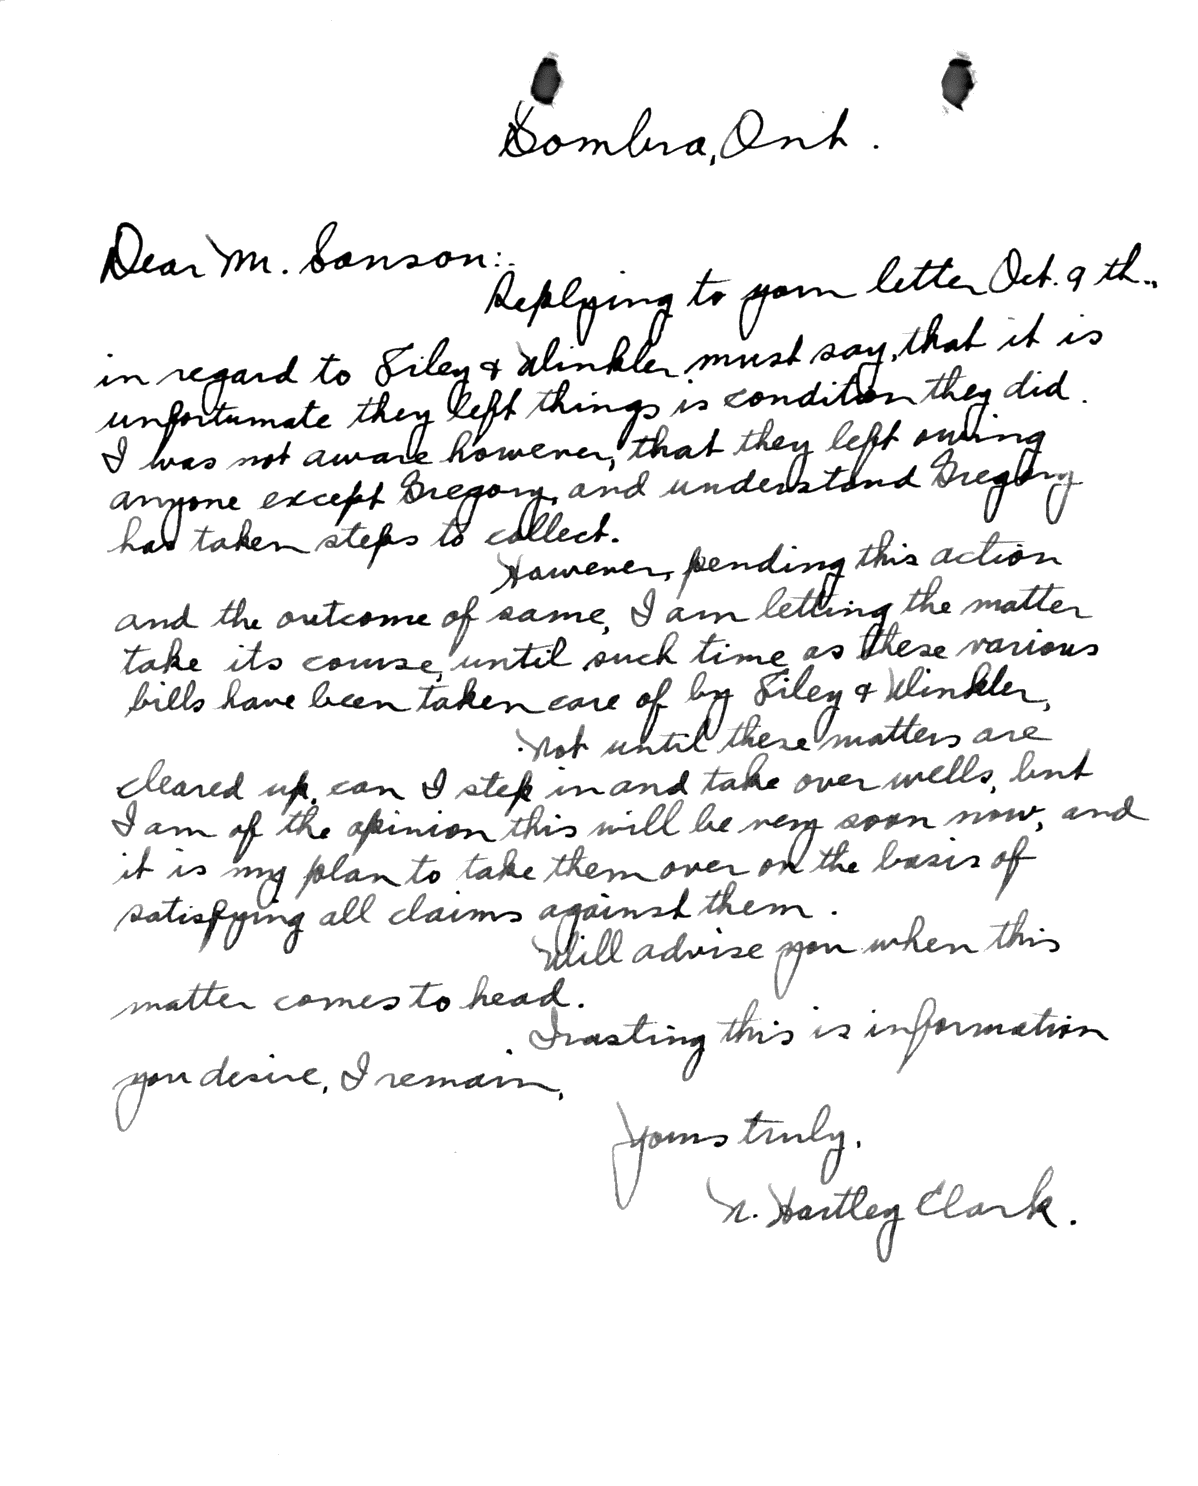 Sombra, Ont.
Dear Mr. Sanson:.
Replying to your letter Oct. 9 th..
in regard to Filey & Winkler must say, that it is
unfortunate they left things is condition they did.
I was not aware however, that they left owing
anyone except Gregory, and understand Gregory
has taken steps to collect.
However, pending this action
and the outcome of same, I am letting the matter
take its course, until such time as these various
bills have been taken care of by Filey & Winkler,
Not until these matters are
cleared up, can I step in and take over wells, but
I am of the opinion this will be very soon now, and
it is my plan to take them over on the basis of
satisfying all claims against them.
Will advise you when this
matter comes to head.
Trusting this is information
you desire, I remain,
Yours truly,
N. Hartley Clark.